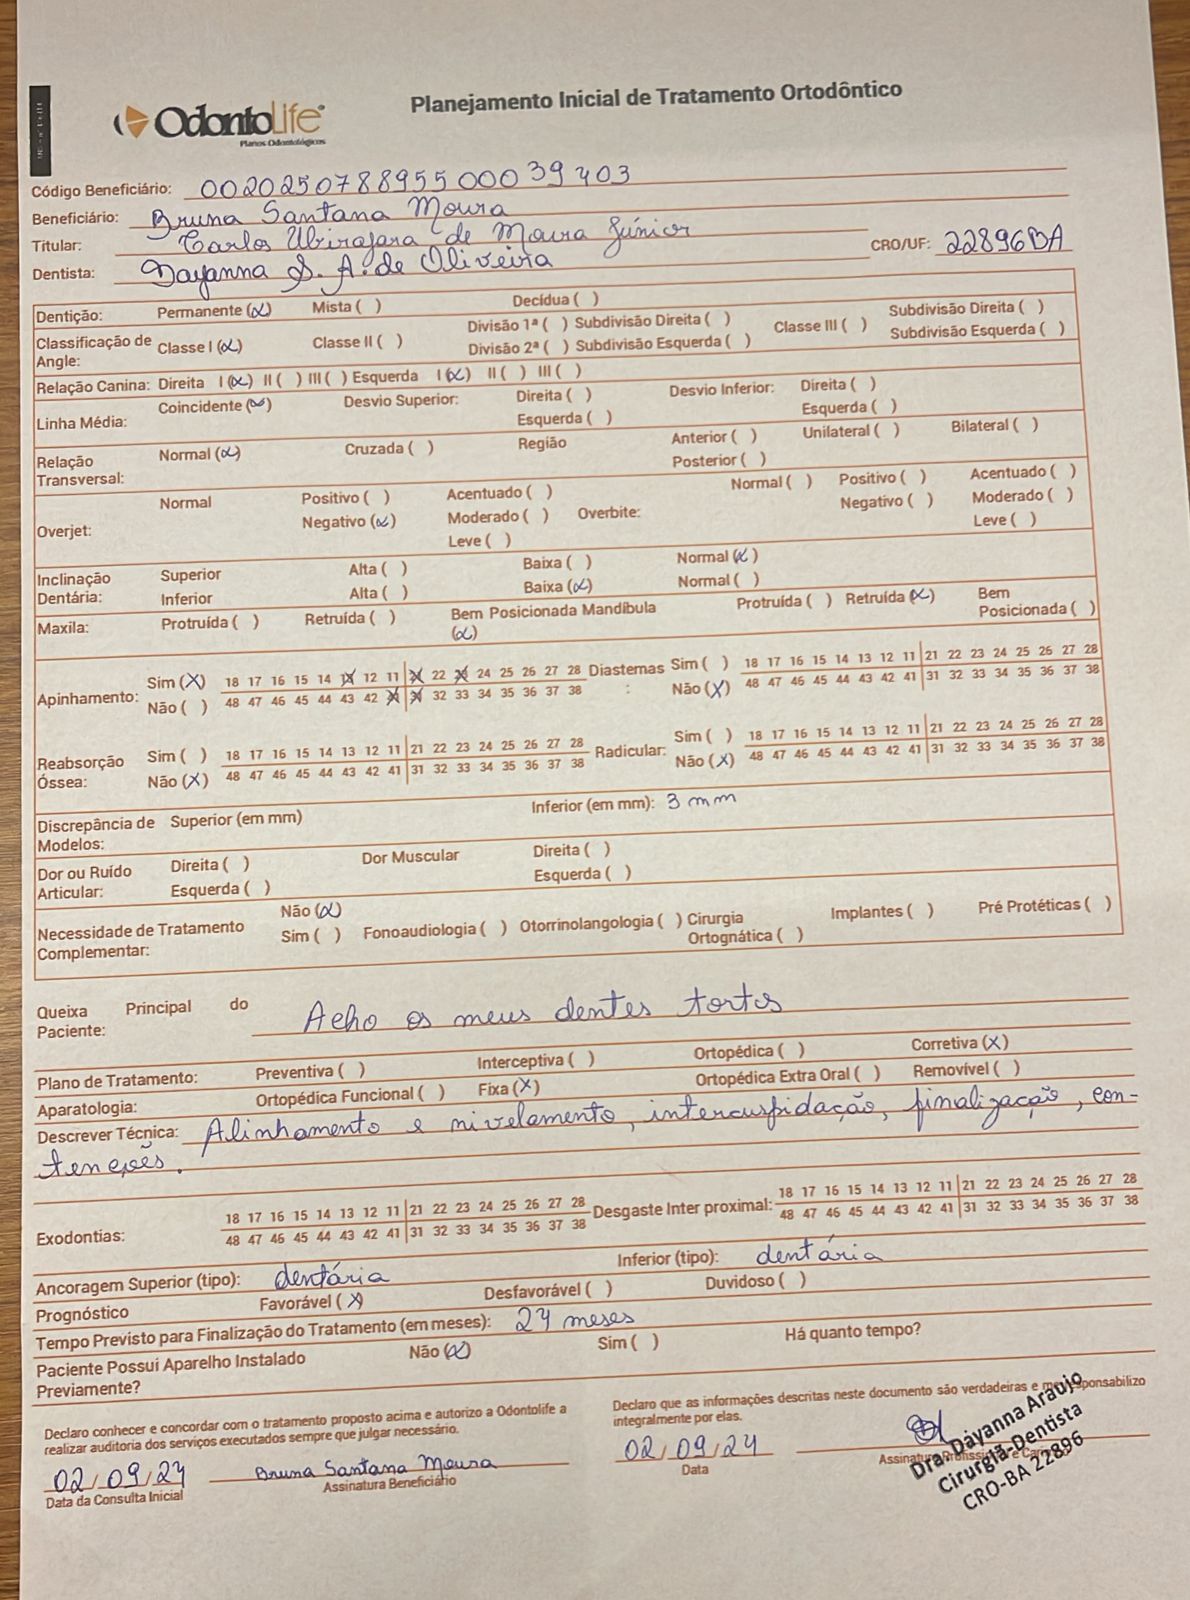 Planejamento Inicial de Tratamento Ortodôntico
OdontoLife
Planos Odontológicos
Código Beneficiário: 0020250788955000 39403
Beneficiário: Bruna Santana Moura
Titular: Carlos Ubirajara de Moura Júnior
Dentista: Dayanna S. A. de Oliveira CRO/UF: 22896BA
Dentição: Permanente (x) Mista ( ) Decídua ( )
Classificação de Angle: Classe I (x) Classe II ( ) Divisão 1ª ( ) Subdivisão Direita ( ) Classe III ( ) Subdivisão Direita ( )
Divisão 2ª ( ) Subdivisão Esquerda ( ) Subdivisão Esquerda ( )
Relação Canina: Direita I (x) II ( ) III ( ) Esquerda I (x) II ( ) III ( )
Linha Média: Coincidente (x) Desvio Superior: Direita ( ) Desvio Inferior: Direita ( )
Esquerda ( ) Esquerda ( )
Relação Transversal: Normal (x) Cruzada ( ) Região Anterior ( ) Unilateral ( ) Bilateral ( )
Posterior ( )
Overjet: Normal Positivo ( ) Acentuado ( ) Overbite: Normal ( ) Positivo ( ) Acentuado ( )
Negativo (x) Moderado ( ) Negativo ( ) Moderado ( )
Leve ( ) Leve ( )
Inclinação Dentária: Superior Alta ( ) Baixa ( ) Normal (x)
Inferior Alta ( ) Baixa (x) Normal ( )
Maxila: Protruída ( ) Retruída ( ) Bem Posicionada (x) Mandíbula Protruída ( ) Retruída (x) Bem Posicionada ( )
Apinhamento: Sim (X) 18 17 16 15 14 13 12 11 21 22 23 24 25 26 27 28 Diastemas: Sim ( ) 18 17 16 15 14 13 12 11 21 22 23 24 25 26 27 28
Não ( ) 48 47 46 45 44 43 42 41 31 32 33 34 35 36 37 38 Não (X) 48 47 46 45 44 43 42 41 31 32 33 34 35 36 37 38
Reabsorção Óssea: Sim ( ) 18 17 16 15 14 13 12 11 21 22 23 24 25 26 27 28 Radicular: Sim ( ) 18 17 16 15 14 13 12 11 21 22 23 24 25 26 27 28
Não (X) 48 47 46 45 44 43 42 41 31 32 33 34 35 36 37 38 Não (X) 48 47 46 45 44 43 42 41 31 32 33 34 35 36 37 38
Discrepância de Modelos: Superior (em mm) Inferior (em mm): 3 mm
Dor ou Ruído Articular: Direita ( ) Dor Muscular Direita ( )
Esquerda ( ) Esquerda ( )
Necessidade de Tratamento Complementar: Não (x)
Sim ( ) Fonoaudiologia ( ) Otorrinolangologia ( ) Cirurgia Ortognática ( ) Implantes ( ) Pré Protéticas ( )
Queixa Principal do Paciente: Acho os meus dentes tortos
Plano de Tratamento: Preventiva ( ) Interceptiva ( ) Ortopédica ( ) Corretiva (X)
Aparatologia: Ortopédica Funcional ( ) Fixa (X) Ortopédica Extra Oral ( ) Removível ( )
Descrever Técnica: Alinhamento e nivelamento, intercuspidação, finalização, con-
tenções.
Exodontias: 18 17 16 15 14 13 12 11 21 22 23 24 25 26 27 28 Desgaste Inter proximal: 18 17 16 15 14 13 12 11 21 22 23 24 25 26 27 28
48 47 46 45 44 43 42 41 31 32 33 34 35 36 37 38 48 47 46 45 44 43 42 41 31 32 33 34 35 36 37 38
Ancoragem Superior (tipo): dentária Inferior (tipo): dentária
Prognóstico Favorável (X) Desfavorável ( ) Duvidoso ( )
Tempo Previsto para Finalização do Tratamento (em meses): 24 meses
Paciente Possui Aparelho Instalado Previamente? Não (x) Sim ( ) Há quanto tempo?
Declaro conhecer e concordar com o tratamento proposto acima e autorizo a Odontolife a
realizar auditoria dos serviços executados sempre que julgar necessário.
Declaro que as informações descritas neste documento são verdadeiras e me responsabilizo
integralmente por elas.
02/09/24 Bruna Santana Moura
Data da Consulta Inicial Assinatura Beneficiário
02/09/24
Data Assinatura Profissional e Carimbo
Dra. Dayanna Araujo
Cirurgiã-Dentista
CRO-BA 22896